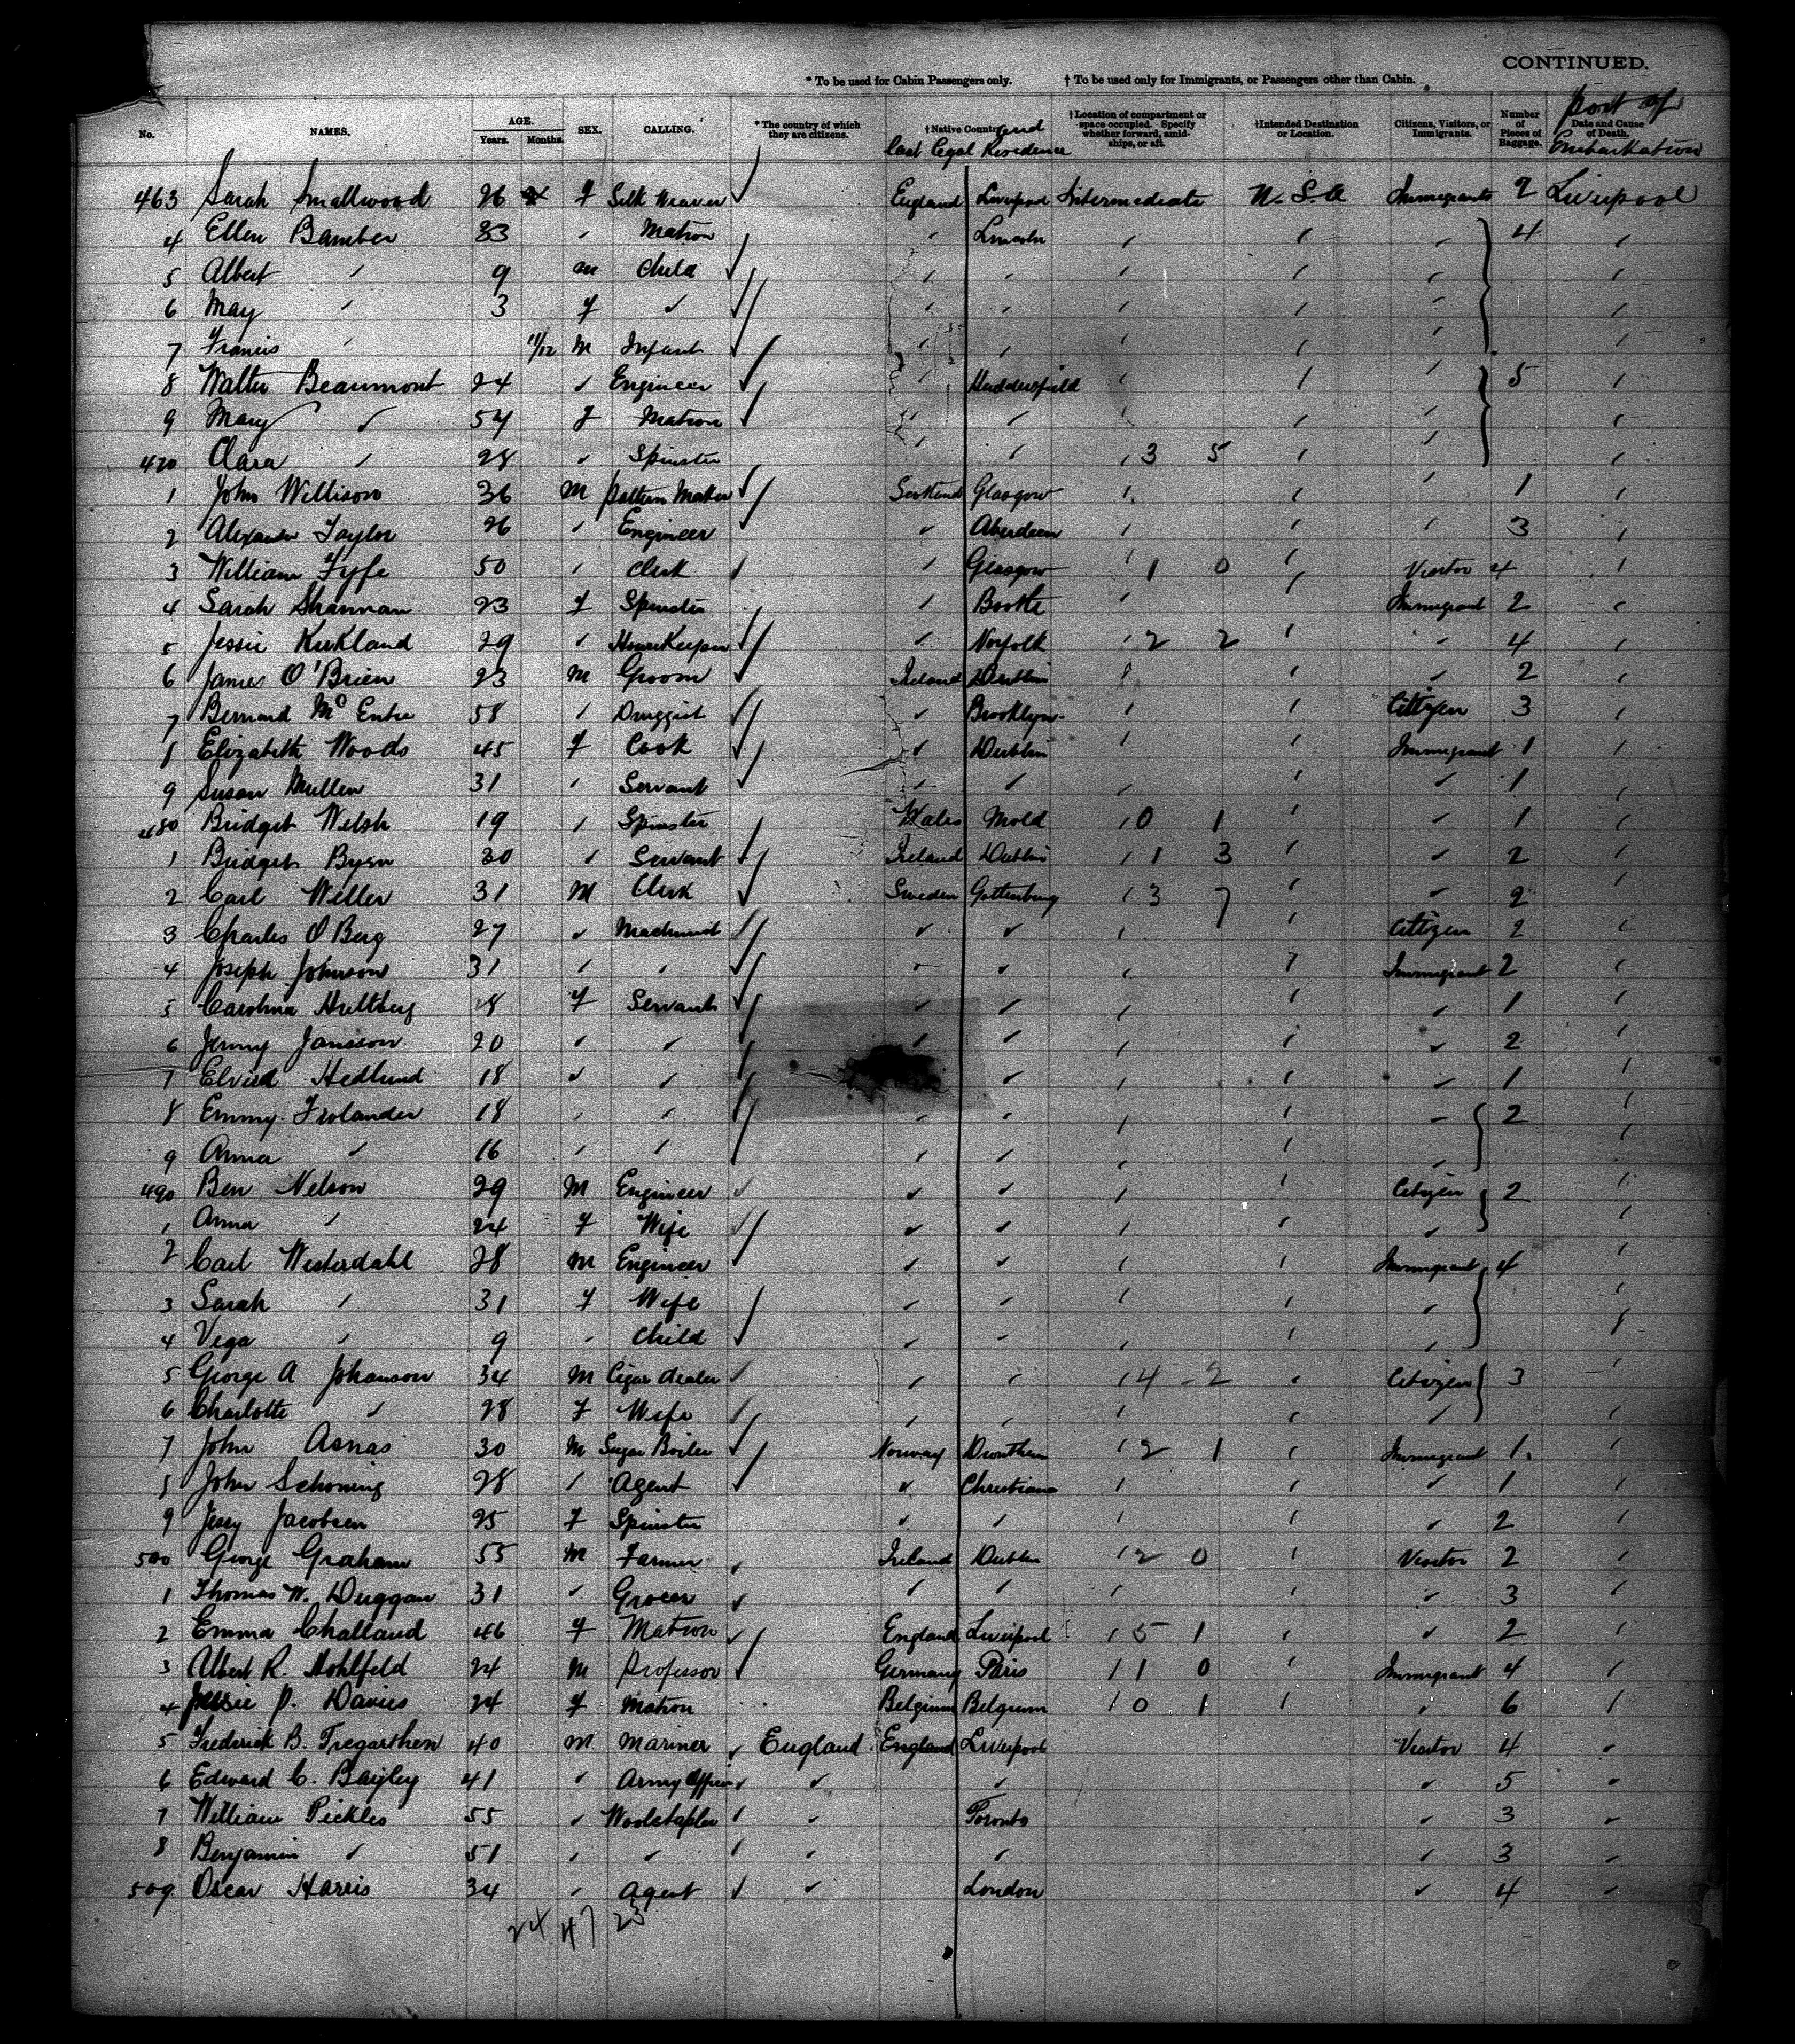 CONTINUED.
* To be used for Cabin Passengers only. † To be used only for Immigrants, or Passengers other than Cabin.
No. NAMES. AGE. Years. Months. SEX. CALLING. * The country of which they are citizens. † Native Country and last legal Residence † Location of compartment or space occupied. Specify whether forward, amidships, or aft. † Intended Destination or Location. Citizens, Visitors, or Immigrants. Number of Pieces of Baggage. Date and Cause of Death. port of Embarkation
463 Sarah Smallwood 26 F Silk Weaver England Liverpool Intermediate U.S.A Immigrants 2 Liverpool
4 Ellen Bamber 33 " Matron " Lincoln " " " 4 "
5 Albert " 9 M Child " " " " " "
6 May " 3 F " " " " " " "
7 Francis " 11/12 M Infant " " " " " "
8 Walter Beaumont 24 " Engineer " Huddersfield " " " 5 "
9 Mary " 54 F Matron " " " " " "
470 Clara " 28 " Spinster " " " 3 5 " " "
1 John Willison 36 M Pattern Maker Scotland Glasgow " " " 1 "
2 Alexander Taylor 26 " Engineer " Aberdeen " " " 3 "
3 William Fyfe 50 " Clerk " Glasgow " 1 0 " Visitor 4 "
4 Sarah Shannan 23 F Spinster " Bootle " " Immigrant 2 "
5 Jessie Kirkland 29 " HouseKeeper " Norfolk " 2 2 " " 4 "
6 James O'Brien 23 M Groom Ireland Dublin " " " 2 "
7 Bernard McEntee 58 " Druggist " Brooklyn " " Citizen 3 "
8 Elizabeth Woods 45 F Cook " Dublin " " Immigrant 1 "
9 Susan Mullen 31 " Servant " " " " " 1 "
480 Bridget Welsh 19 " Spinster Wales Mold " 0 1 " " 1 "
1 Bridget Byrn 30 " Servant Ireland Dublin " 1 3 " " 2 "
2 Carl Weller 31 M Clerk Sweden Gottenburg " 3 7 " " 2 "
3 Charles O Berg 27 " Machinist " " " " Citizen 2 "
4 Joseph Johnson 31 " " " " " " Immigrant 2 "
5 Carolina Hultberg 28 F Servant " " " " " 1 "
6 Jenny Jansson 20 " " " " " " " 2 "
7 Elvira Hedlund 18 " " " " " " 1 "
8 Emmy Frolander 18 " " " " " " " 2 "
9 Anna " 16 " " " " " " " "
490 Ben Nelson 29 M Engineer " " " " Citizen 2 "
1 Anna " 24 F Wife " " " " " "
2 Carl Westerdahl 28 M Engineer " " " " Immigrant 4 "
3 Sarah " 31 F Wife " " " " " "
4 Vega " 9 " Child " " " " " "
5 George A Johanson 34 M Cigar dealer " " " 4 - 2 " Citizen 3 "
6 Charlotte " 28 F Wife " " " " " "
7 John Asnas 30 M Sugar Boiler Norway Drontheim " 2 1 " Immigrant 1 "
8 John Schoning 28 " Agent " Christiana " " " 1 "
9 Jessy Jacobsen 25 F Spinster " " " " " 2 "
500 George Graham 55 M Farmer Ireland Dublin " 2 0 " Visitor 2 "
1 Thomas W. Duggan 31 " Grocer " " " " " 3 "
2 Emma Challand 46 F Matron England Liverpool " 5 1 " " 2 "
3 Albert R. Hohlfeld 24 M Professor Germany Paris " 1 0 " Immigrant 4 "
4 Jessie P. Davies 24 F Matron Belgium Belgium " 0 1 " " 6 "
5 Frederick B. Tregarthen 40 M Mariner England England Liverpool Visitor 4 "
6 Edward C. Bayley 41 " Army Officer " " " 5 "
7 William Pickles 55 " Woolstapler " Toronto " 3 "
8 Benjamin " 51 " " " " " 3 "
509 Oscar Harris 34 " Agent " London " 4 "
24 47 23